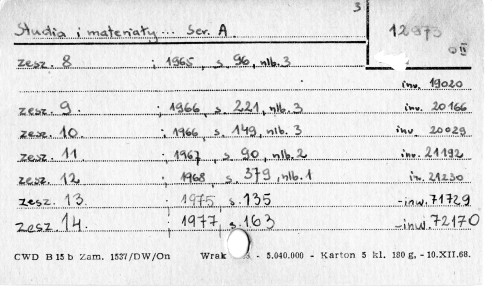 3
Studia i materiały... Ser. A. 12973
zesz. 8 ; 1965, s. 96, nlb. 3
inv. 19020
zesz. 9 ; 1966, s. 221, nlb. 3 inv. 20166
zesz. 10 ; 1966, s. 149, nlb. 3 inv 20029
zesz. 11 ; 1967, s. 90, nlb. 2 inv. 21192
zesz. 12 ; 1968, s. 379, nlb. 1 in. 21230
zesz. 13 ; 1975, s. 135 -inw. 71729
zesz. 14. ; 1977, s. 163 -inw. 72170
CWD B 15 b Zam. 1537/DW/On - 5.040.000 - Karton 5 kl. 180 g, - 10.XII.68.